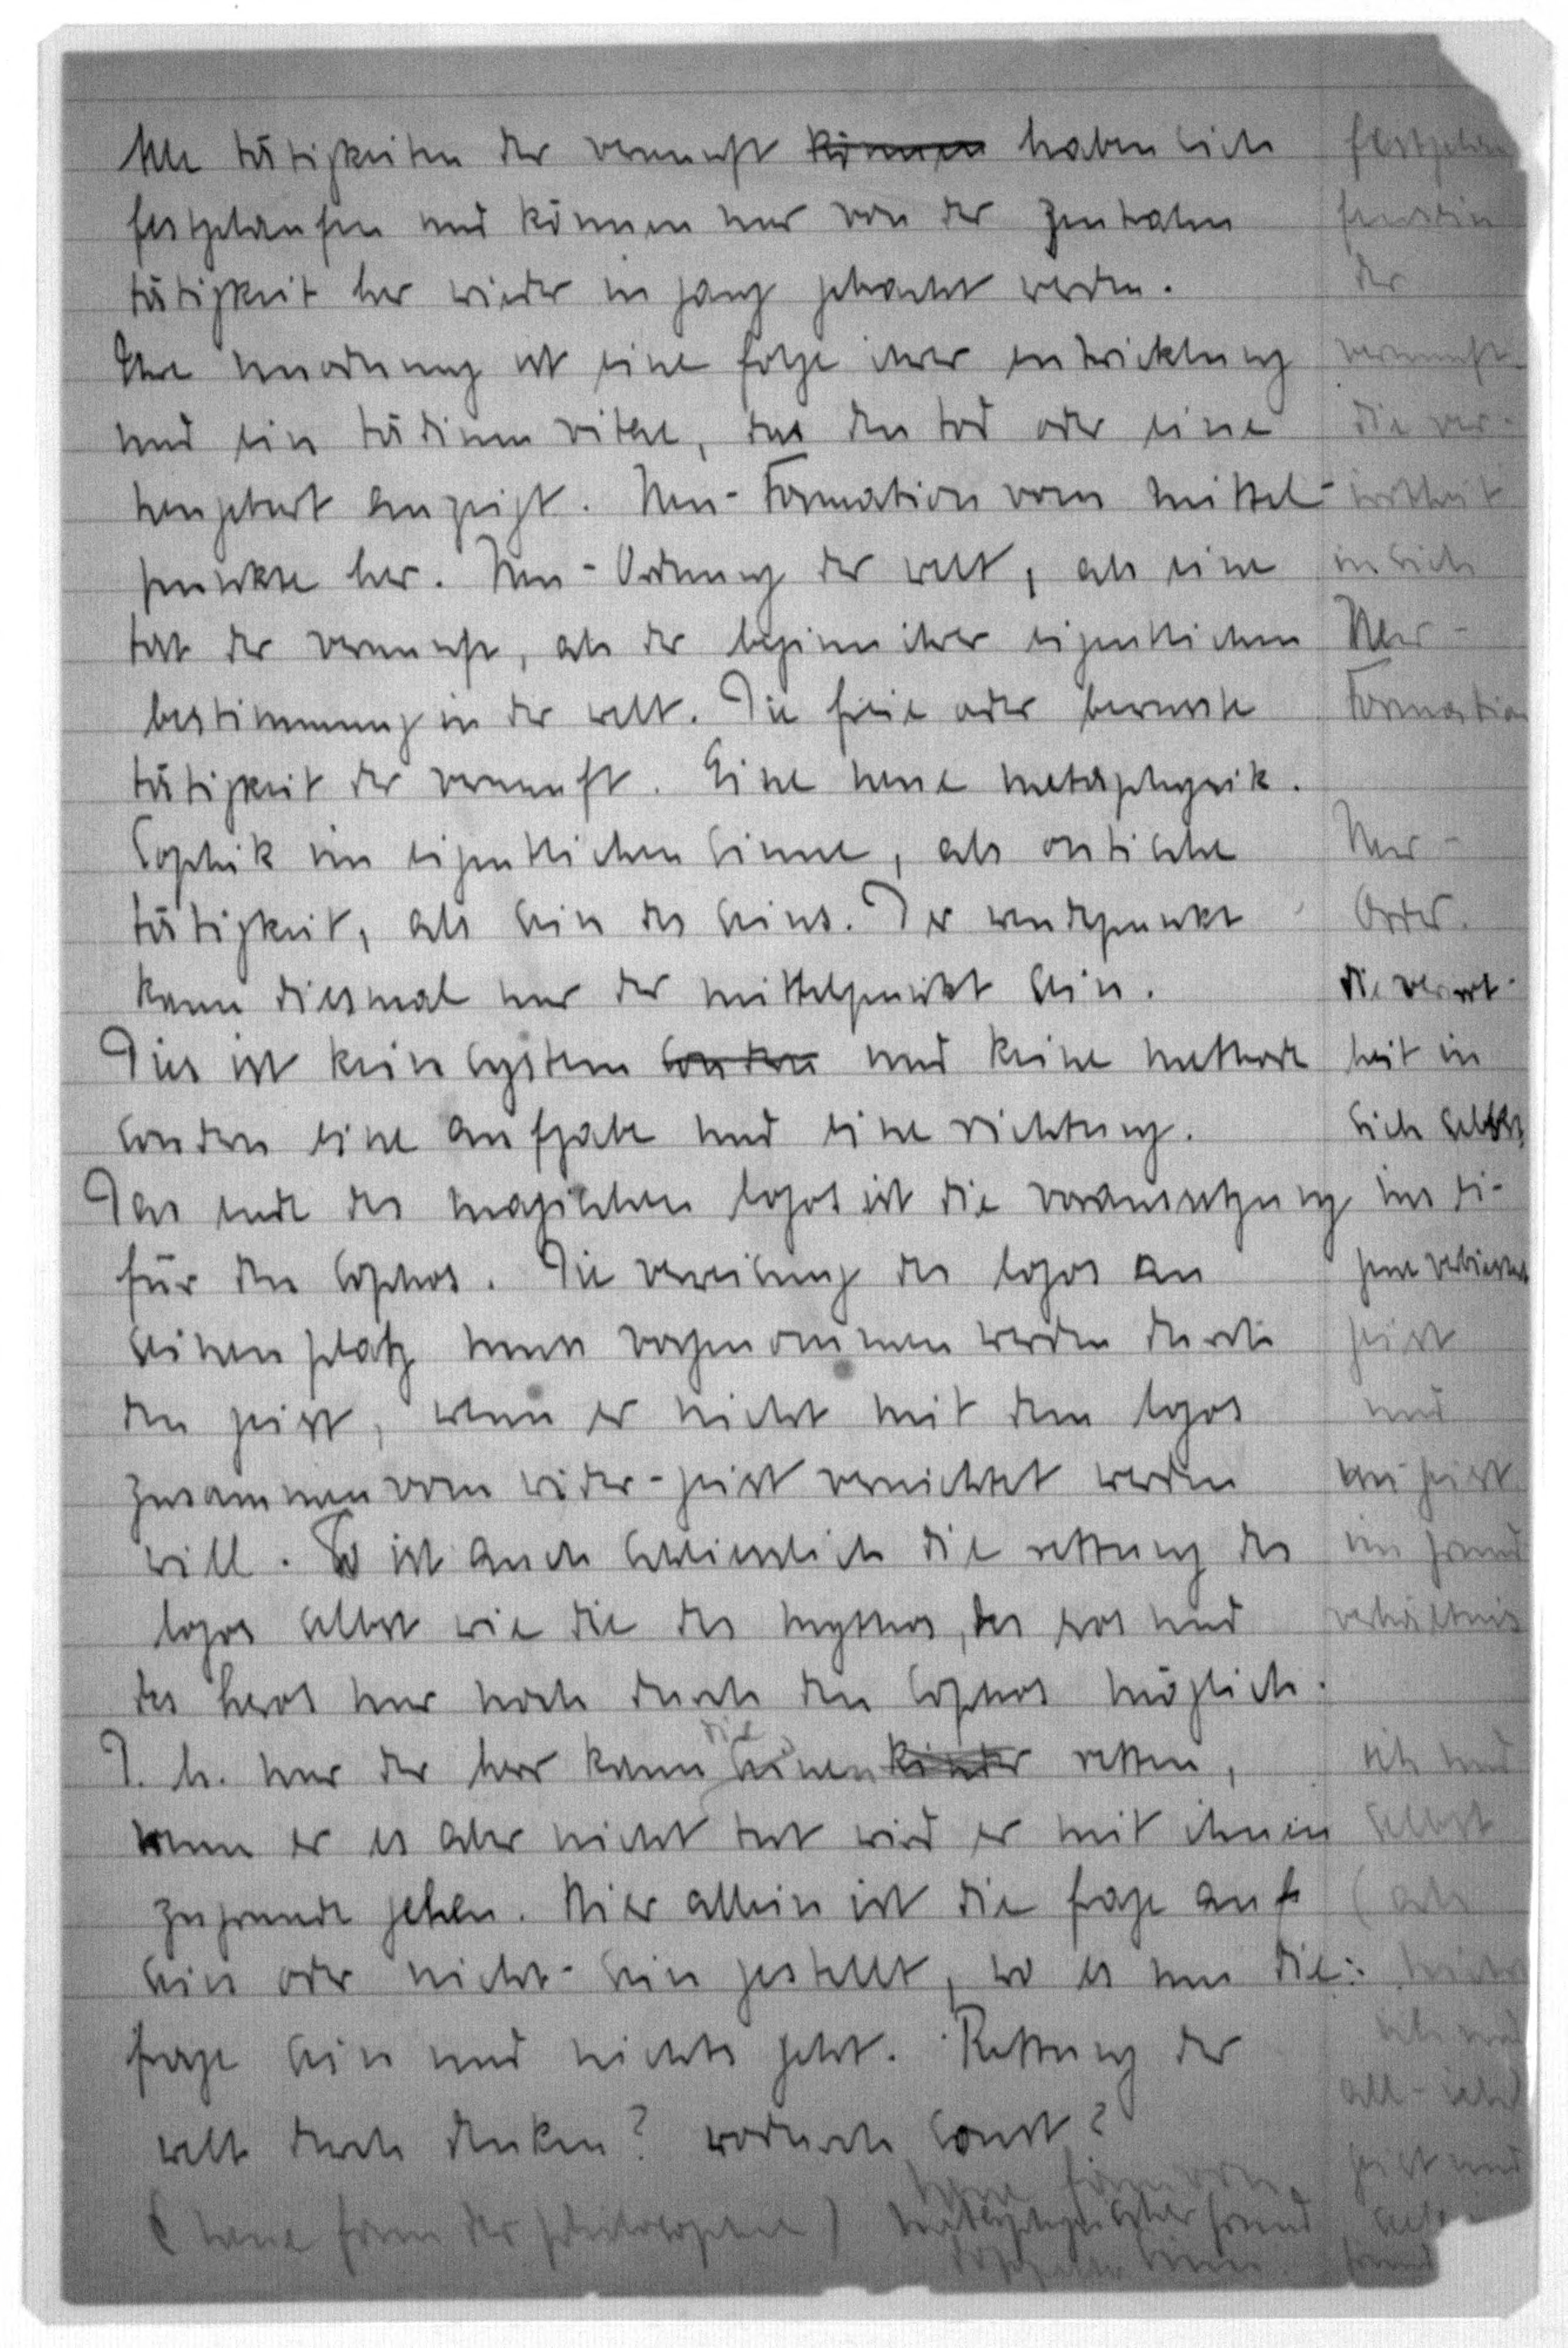 Alle tätigkeiten der vernunft können haben sich
festgelaufen und können nur von der zentralen
tätigkeit her wieder in gang gebracht werden.
Ihre unordnung ist eine folge ihrer entwicklung
und ein tädium vitae, das den tod oder eine
neugeburt anzeigt. Neu-Formation vom mittel-
punkte her. Neu-Ordnung der welt, als eine
tat der vernunft, als der beginn ihrer eigentlichen
bestimmung in der welt. Die freie oder bewusste
tätigkeit der vernunft. Eine neue metaphysik.
Sophik im eigentlichen sinne, als ontische
tätigkeit, als sein des seins. Der wendepunkt
kann diesmal nur der mittelpunkt sein.
Dies ist kein system sondern und keine methode
sondern eine aufgabe und eine richtung.
Das ende des magischen logos ist die voraussetzung
für den sophos. Die verweisung des logos an
seinen platz muss vorgenommen werden durch
den geist, wenn er nicht mit dem logos
zusammen vom wider-geist vernichtet werden
will. So ist auch schliesslich die rettung des
logos selbst wie die des mythos, des eros und
des heros nur noch durch den sophos möglich.
D. h. nur der herr kann die seinen kinder retten,
wenn er es aber nicht tut wird er mit ihnen
zugrunde gehen. Hier allein ist die frage auf
sein oder nicht-sein gestellt, wo es um die
frage sein und nichts geht. Rettung der
welt durch denken? wodurch sonst?
(neue form der philosophie) metaphysischer grund
der
vernunft
die ver-
irrtheit
in sich
Neu-
Formation
Neu-
Order.
die verirrt-
heit in
sich selbst,
geist
und
un geist
im grund
verhältnis
ich und
selbst
(als
all-ich
geist und